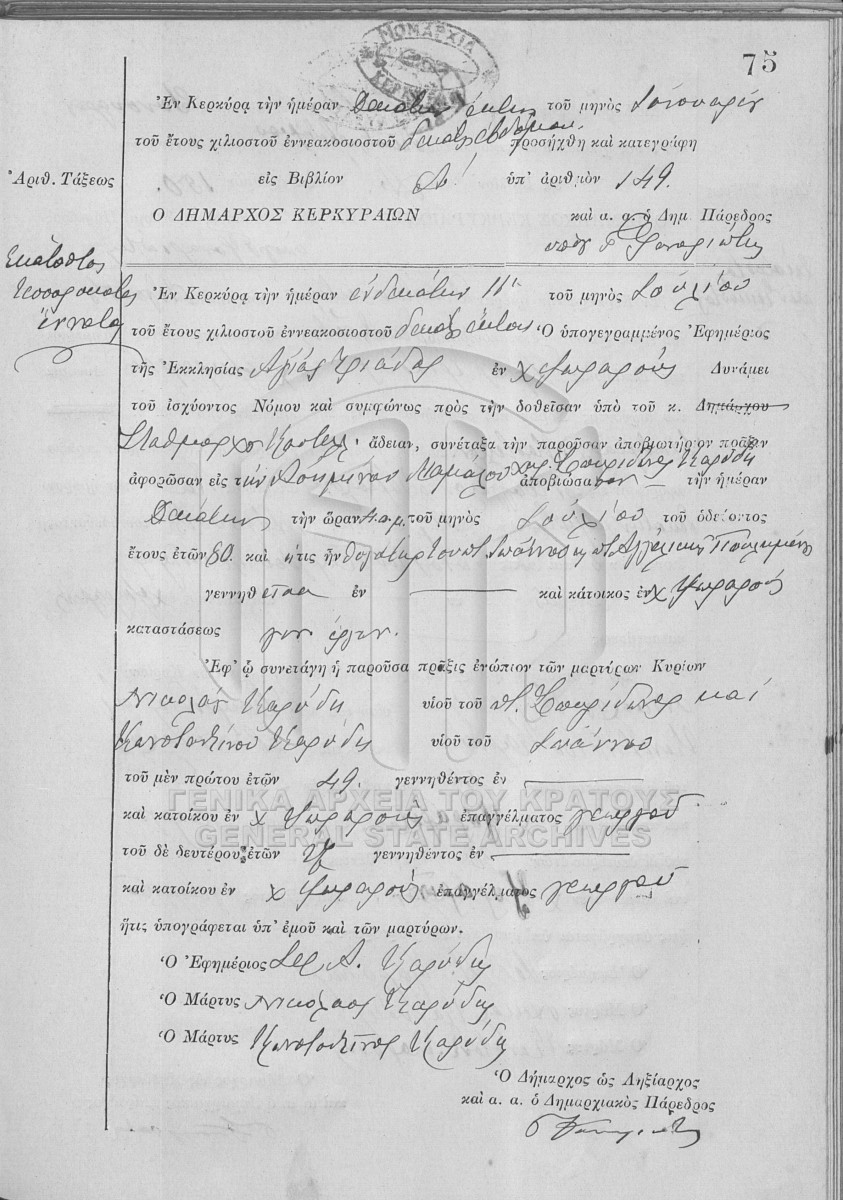 ΝΟΜΑΡΧΙΑ
ΚΕΡΚΥΡΑΣ
75
Ἐν Κερκύρᾳ τὴν ἡμέραν Δεκάτην ἕκτην τοῦ μηνὸς Ἰανουαρίου
τοῦ ἔτους χιλιοστοῦ ἐννεακοσιοστοῦ δεκάτου ἑβδόμου προσήχθη καὶ κατεγράφη
Ἀριθ. Τάξεως εἰς Βιβλίον Α' ὑπ' ἀριθμὸν 149.
Ο ΔΗΜΑΡΧΟΣ ΚΕΡΚΥΡΑΙΩΝ καὶ α. α. ὁ Δημ Πάρεδρος
Ἑκατοστὸς
Τεσσαρακοστὸς
ἔννατος
Ἐν Κερκύρᾳ τὴν ἡμέραν ἑνδεκάτην 11 τοῦ μηνὸς Ἰουλίου
τοῦ ἔτους χιλιοστοῦ ἐννεακοσιοστοῦ Ὁ ὑπογεγραμμένος Ἐφημέριος
τῆς Ἐκκλησίας Ἁγίας Τριάδος ἐν χ Ψωραροὺς Δυνάμει
τοῦ ἰσχύοντος Νόμου καὶ συμφώνως πρὸς τὴν δοθεῖσαν ὑπὸ τοῦ κ. Δημάρχου
ἄδειαν, συνέταξα τὴν παροῦσαν ἀποβιωτήριον πρᾶξιν
ἀφορῶσαν εἰς τὴν χηρ. Σπυρίδωνος Καρύδη ἀποβιώσασαν τὴν ἡμέραν
Δεκάτην τὴν ὥραν τοῦ μηνὸς Ἰουλίου τοῦ ὁδεύοντος
ἔτους ἐτῶν 80. καὶ ἥτις ἦν θυγάτηρ τοῦ ποτ Ἰωάννου
γεννηθεῖσα ἐν καὶ κάτοικος ἐν χ Ψωραροὺς
καταστάσεως
Ἐφ' ᾧ συνετάγη ἡ παροῦσα πρᾶξις ἐνώπιον τῶν μαρτύρων Κυρίων
Νικολάου Καρύδη υἱοῦ τοῦ ποτ. Σπυρίδωνος καὶ
Κωνσταντίνου Καρύδη υἱοῦ τοῦ Ἰωάννου
τοῦ μὲν πρώτου ἐτῶν 49. γεννηθέντος ἐν
καὶ κατοίκου ἐν χ Ψωραροὺς ἐπαγγέλματος γεωργοῦ
ΓΕΝΙΚΑ ΑΡΧΕΙΑ ΤΟΥ ΚΡΑΤΟΥΣ
GENERAL STATE ARCHIVES
τοῦ δὲ δευτέρου ἐτῶν γεννηθέντος ἐν
καὶ κατοίκου ἐν χ Ψωραροὺς ἐπαγγέλματος γεωργοῦ
ἥτις ὑπογράφεται ὑπ' ἐμοῦ καὶ τῶν μαρτύρων.
Ὁ Ἐφημέριος Ἱερ Α. Καρύδης
Ὁ Μάρτυς Νικόλαος Καρύδης
Ὁ Μάρτυς Κωνσταντῖνος Καρύδης
Ὁ Δήμαρχος ὡς Ληξίαρχος
καὶ α. α. ὁ Δημαρχιακὸς Πάρεδρος